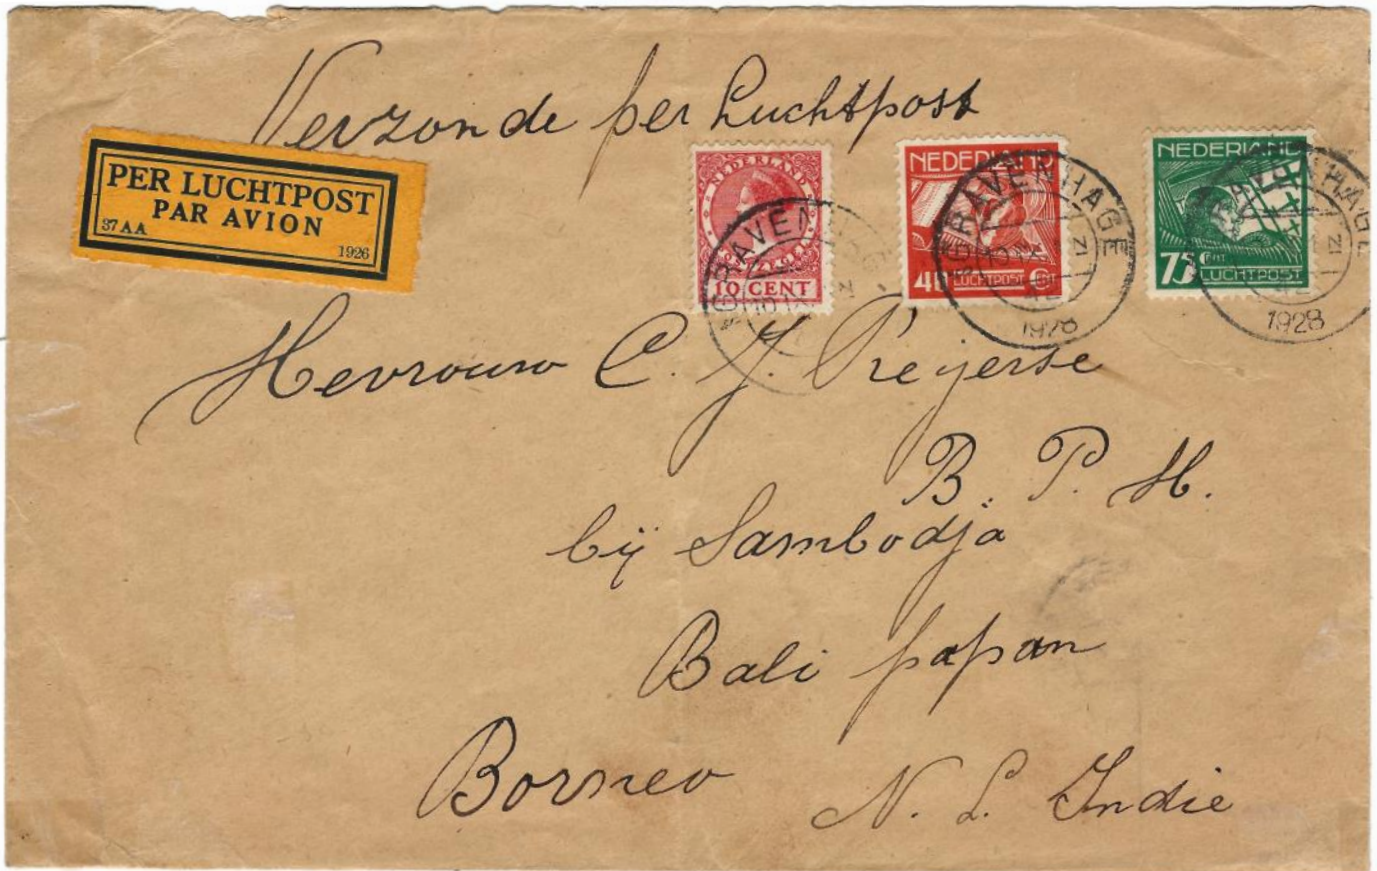 Verzonde per Luchtpost
PER LUCHTPOST
PAR AVION
37 AA
1926
NEDERLAND
10 CENT
NEDERLAND
40
LUCHTPOST
CNT
NEDERLAND
75
CNT
LUCHTPOST
'S GRAVENHAGE
1928
'S GRAVENHAGE
1928
'S GRAVENHAGE
Mevrouw C. J. Preyerse
B. P. M.
bij Sambodja
Bali papan
Borneo N. L. Indie